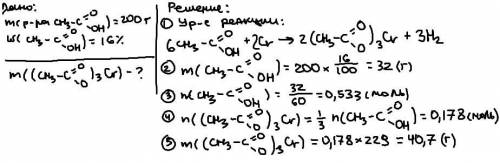 Дано:
m(р-ра CH₃-C(=O)OH) = 200 г
w(CH₃-C(=O)OH) = 16%
m((CH₃-C(=O)O)₃Cr) - ?
Решение:
① Ур-е реакции:
6CH₃-C(=O)OH + 2Cr → 2(CH₃-C(=O)O)₃Cr + 3H₂
② m(CH₃-C(=O)OH) = 200 × 16/100 = 32 (г)
③ n(CH₃-C(=O)OH) = 32/60 = 0,533 (моль)
④ n((CH₃-C(=O)O)₃Cr) = 1/3 n(CH₃-C(=O)OH) = 0,178 (моль)
⑤ m((CH₃-C(=O)O)₃Cr) = 0,178 × 229 = 40,7 (г)